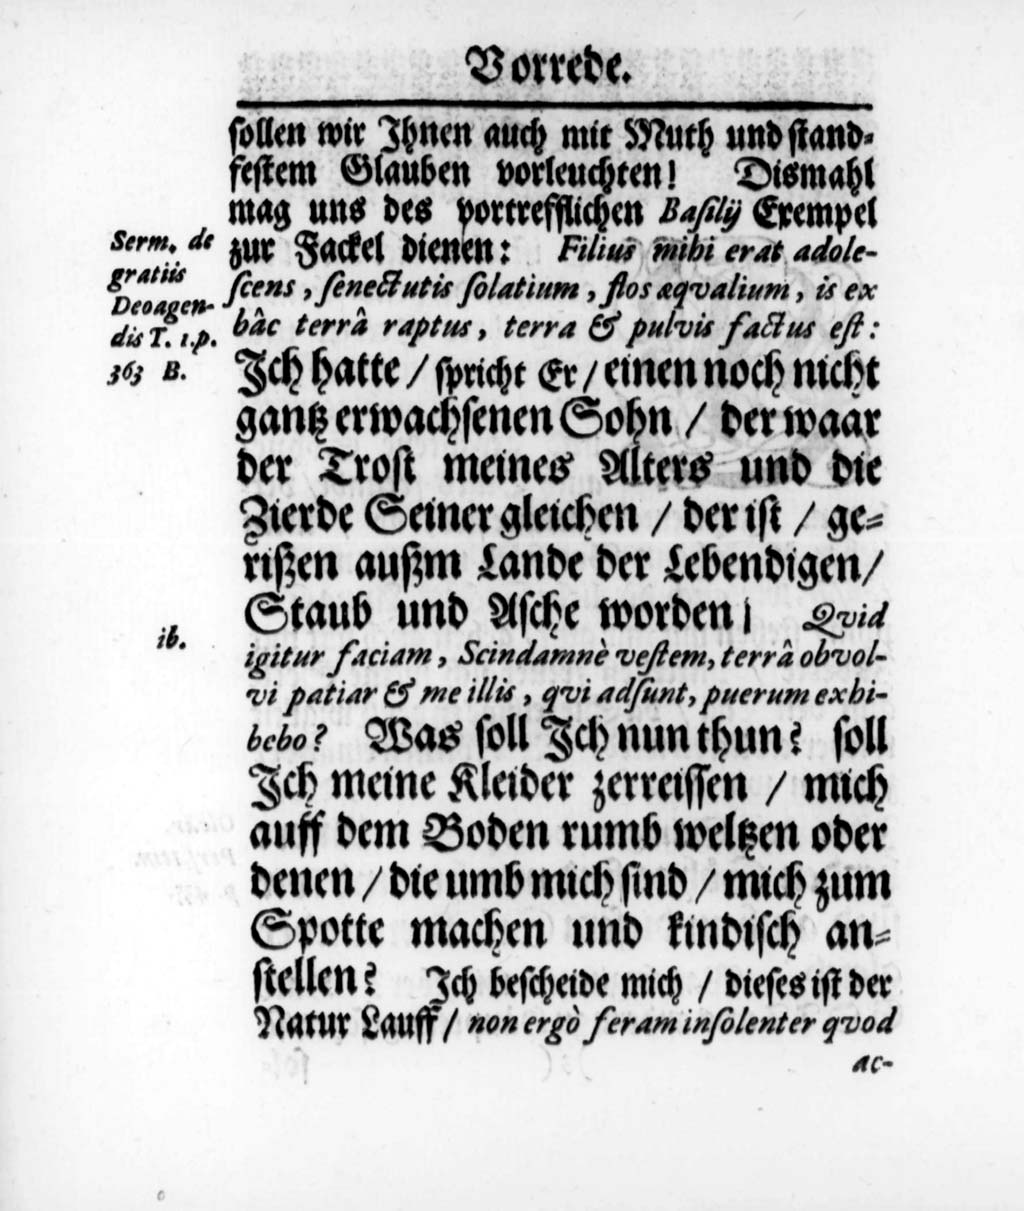 Vorrede.
sollen wir Ihnen auch mit Muth und stand-
festem Glauben vorleuchten! Dismahl
mag uns des vortrefflichen Basilij Exempel
zur Fackel dienen: Filius mihi erat adole-
scens, senectutis solatium, flos æqvalium, is ex
hâc terrâ raptus, terra & pulvis factus est:
Ich hatte / spricht Er / einen noch nicht
gantz erwachsenen Sohn / der waar
der Trost meines Alters und die
Zierde Seiner gleichen / der ist / ge-
rißen außm Lande der Lebendigen /
Staub und Asche worden! Qvid
igitur faciam, Scindamnè vestem, terrâ obvol-
vi patiar & me illis, qvi adsunt, puerum exhi-
bebo? Was soll Ich nun thun? soll
Ich meine Kleider zerreissen / mich
auff dem Boden rumb weltzen oder
denen / die umb mich sind / mich zum
Spotte machen und kindisch an-
stellen? Ich bescheide mich / dieses ist der
Natur Lauff / non ergò feram insolenter qvod
ac-
Serm. de
gratiis
Deo agen-
dis T. 1. p.
363 B.
ib.